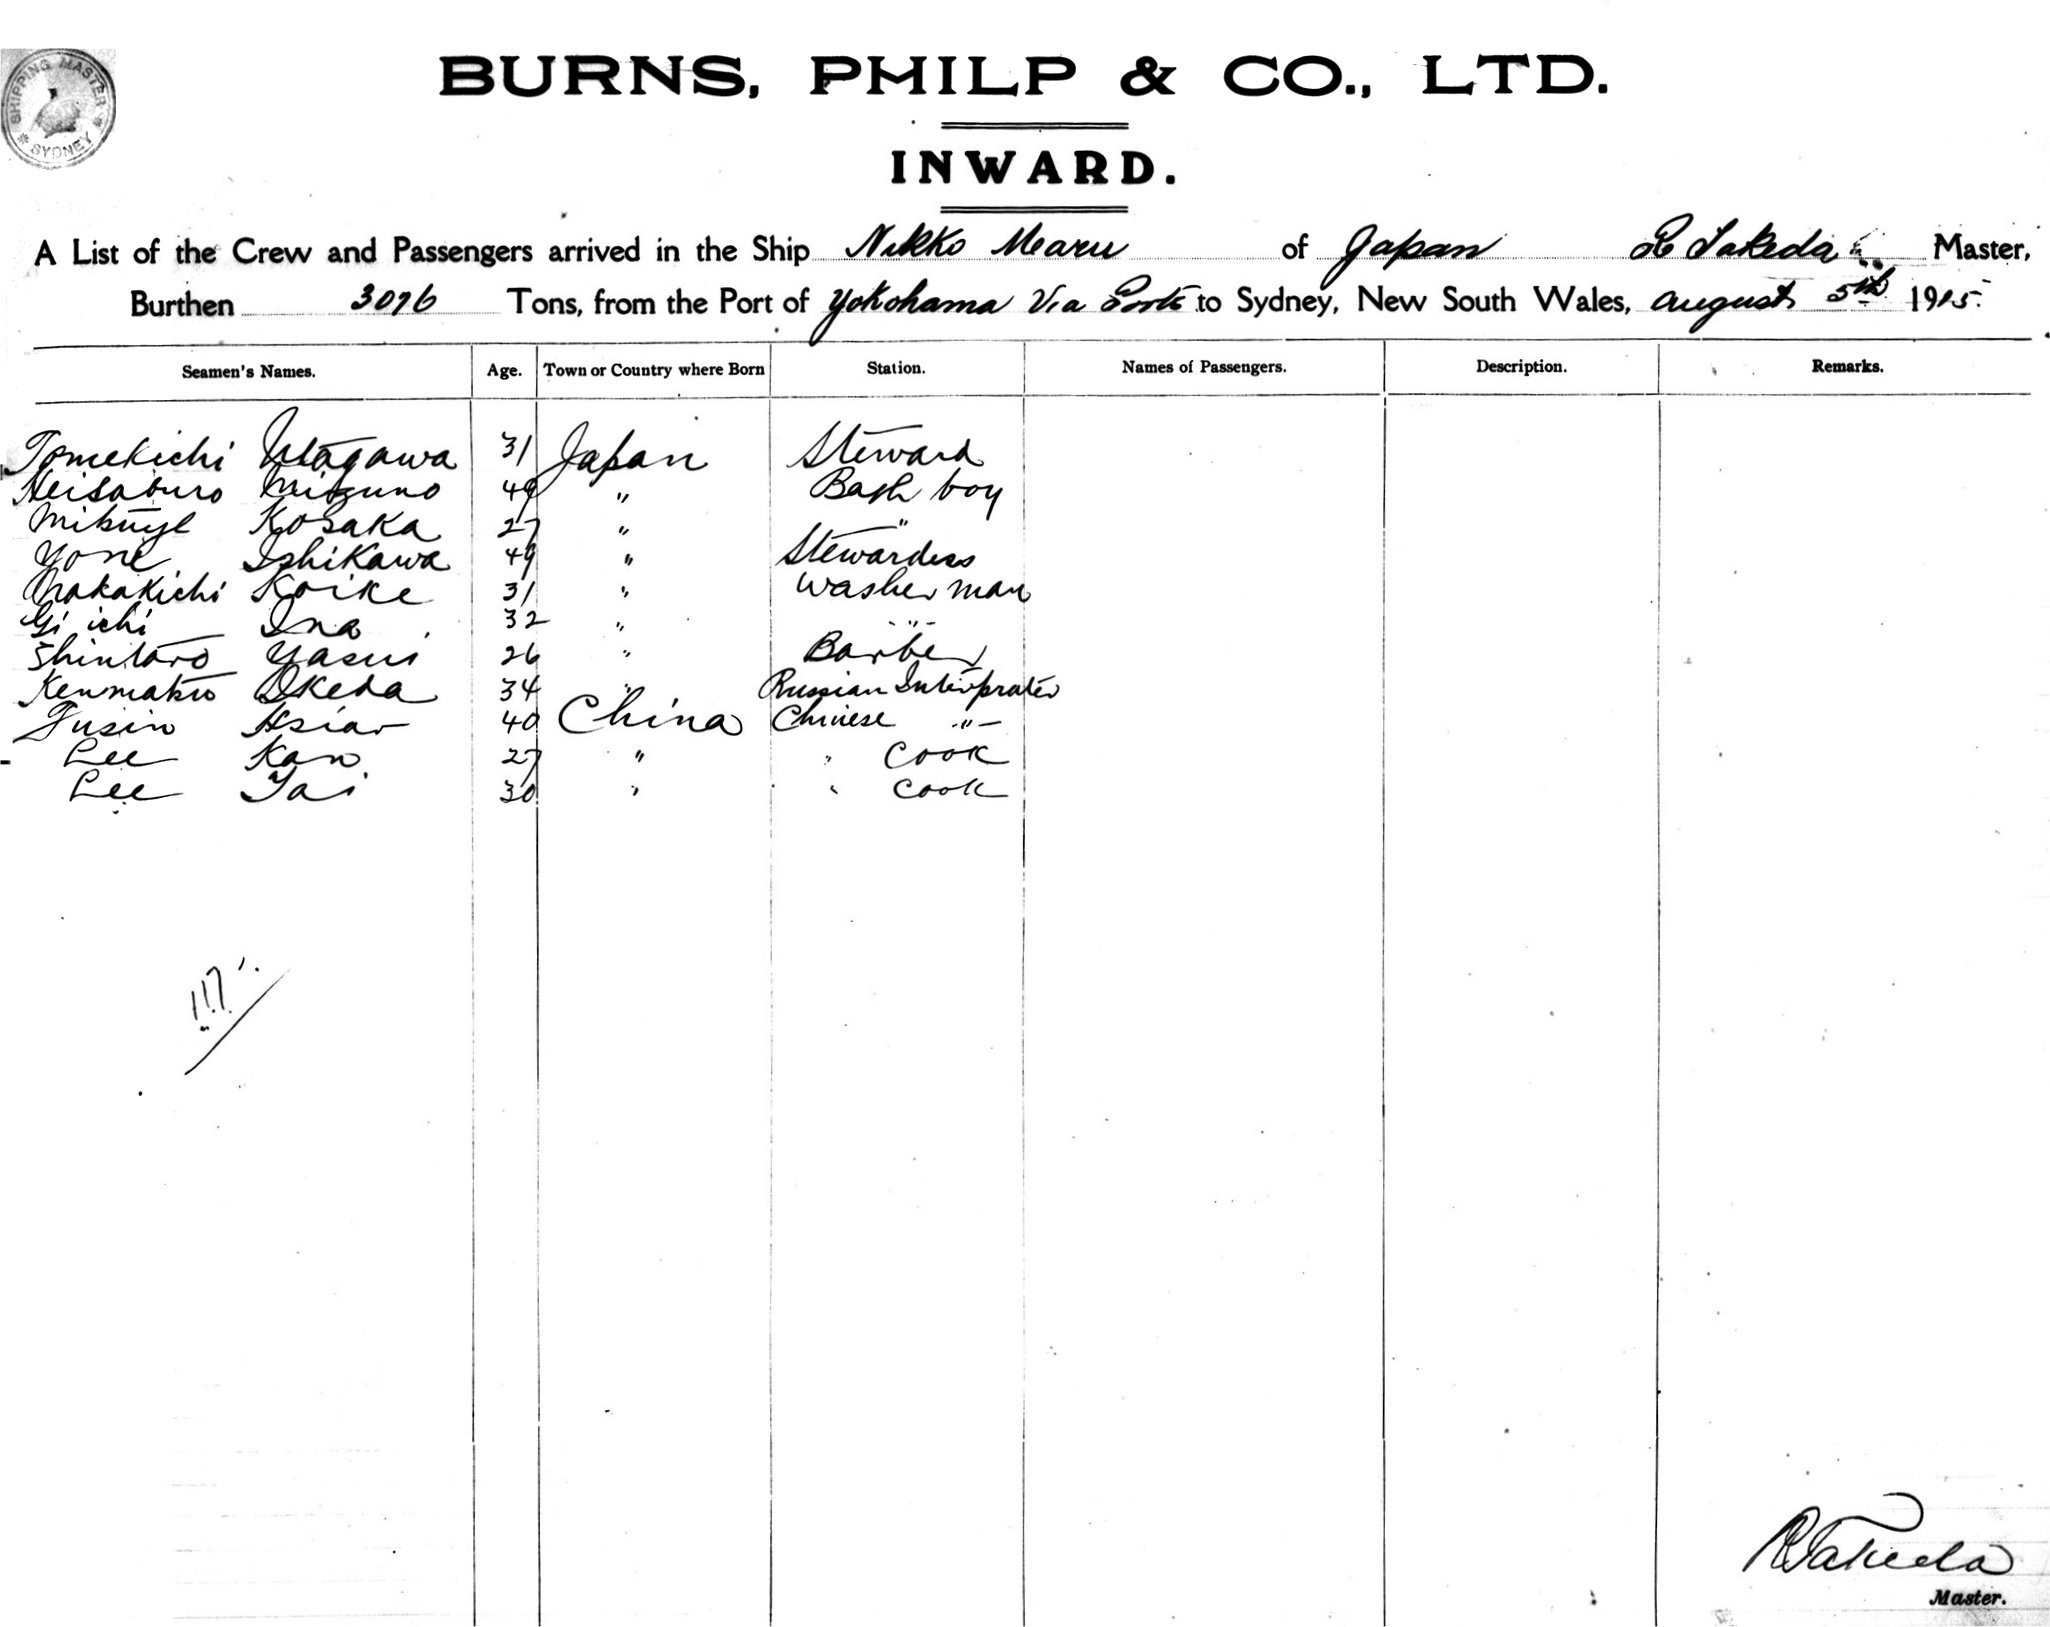 SHIPPING MASTER
SYDNEY
BURNS, PHILP & CO., LTD.
INWARD.
A List of the Crew and Passengers arrived in the Ship Nikko Maru of Japan Takeda Master,
Burthen 3076 Tons, from the Port of Yokohama Via Ports to Sydney, New South Wales, August 5th 1915.
Seamen's Names. Age. Town or Country where Born Station. Names of Passengers. Description. Remarks.
Tomekichi Utagawa 31 Japan Steward
Heisaburo Mizuno 49 " Bath boy
Kosaka 27 " "
Yone Ishikawa 49 " Stewardess
Nakakichi Koike 31 " Washer man
Gi ichi Ina 32 " "
Shintaro Yasui 26 " Barber
Kenmatsu Ikeda 34 " Russian Interprater
Fusin Hsiao 40 China Chinese "
Lee Kan 27 " " Cook
Lee Tai 30 " " Cook
117
Takeda
Master.